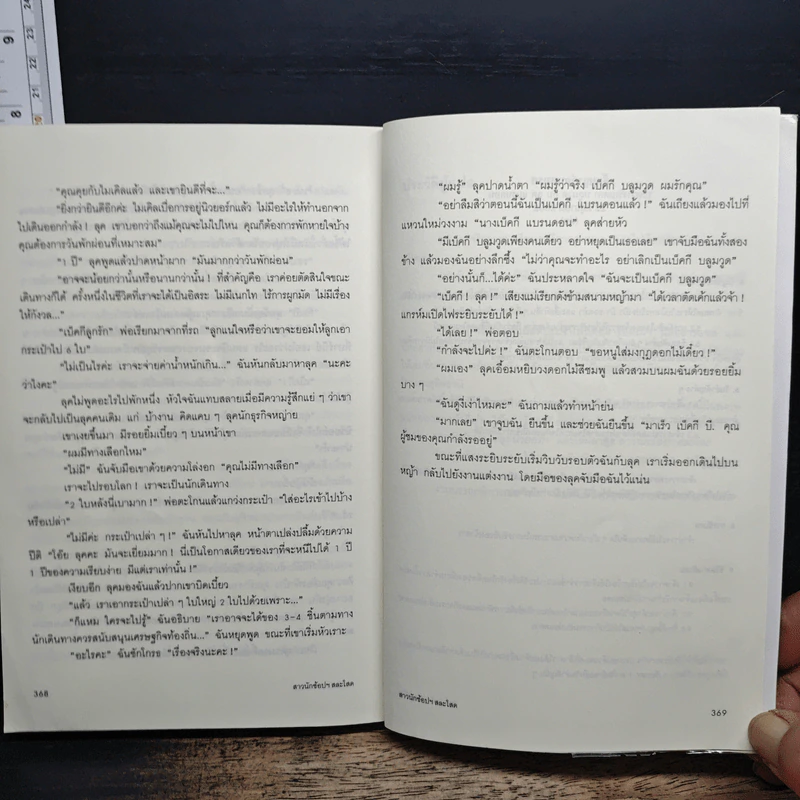 9
8
24
23
22
21
20
"คุณคุยกับไมเคิลแล้ว และเขายินดีที่จะ..."
"ยิ่งกว่ายินดีอีกค่ะ ไมเคิลเบื่อการอยู่นิวยอร์กแล้ว ไม่มีอะไรให้ทำนอกจาก
ไปเดินออกกำลัง ! ลุค เขาบอกว่าถึงแม้คุณจะไม่ไปไหน คุณก็ต้องการพักหายใจบ้าง
คุณต้องการวันพักผ่อนที่เหมาะสม"
"1 ปี" ลุคพูดแล้วปาดหน้าผาก "มันมากกว่าวันพักผ่อน"
"อาจจะน้อยกว่านั้นหรือนานกว่านั้น ! ที่สำคัญคือ เราค่อยตัดสินใจขณะ
เดินทางก็ได้ ครั้งหนึ่งในชีวิตที่เราจะได้เป็นอิสระ ไม่มีเนกไท ไร้การผูกมัด ไม่มีเรื่อง
ให้กังวล..."
"เบ็คกีลูกรัก" พ่อเรียกมาจากที่รถ "ลูกแน่ใจหรือว่าเขาจะยอมให้ลูกเอา
กระเป๋าไป 6 ใบ"
"ไม่เป็นไรค่ะ เราจะจ่ายค่าน้ำหนักเกิน..." ฉันหันกลับมาหาลุค "นะคะ
ว่าไงคะ"
ลุคไม่พูดอะไรไปพักหนึ่ง หัวใจฉันแทบสลายเมื่อมีความรู้สึกแย่ ๆ ว่าเขา
จะกลับไปเป็นลุคคนเดิม แก่ บ้างาน คิดแคบ ๆ ลุคนักธุรกิจหญ่าย
เขาเงยขึ้นมา มีรอยยิ้มเบี้ยว ๆ บนหน้าเขา
"ผมมีทางเลือกไหม"
"ไม่มี" ฉันจับมือเขาด้วยความโล่งอก "คุณไม่มีทางเลือก"
เราจะไปรอบโลก ! เราจะเป็นนักเดินทาง
"2 ใบหลังนี่เบามาก !" พ่อตะโกนแล้วแกว่งกระเป๋า "ใส่อะไรเข้าไปบ้าง
หรือเปล่า"
"ไม่มีค่ะ กระเป๋าเปล่า ๆ !" ฉันหันไปหาลุค หน้าตาเปล่งปลื้มด้วยความ
ปีติ "โอ๊ย ลุคคะ มันจะเยี่ยมมาก ! นี่เป็นโอกาสเดียวของเราที่จะหนีไปได้ 1 ปี
1 ปีของความเรียบง่าย มีแต่เราเท่านั้น !"
เงียบอีก ลุคมองฉันแล้วปากเขาบิดเบี้ยว
"แล้ว เราเอากระเป๋าเปล่า ๆ ใบใหญ่ 2 ใบไปด้วยเพราะ..."
"ก็แหม ใครจะไปรู้" ฉันอธิบาย "เราอาจจะได้ของ 3-4 ชิ้นตามทาง
นักเดินทางควรสนับสนุนเศรษฐกิจท้องถิ่น..." ฉันหยุดพูด ขณะที่เขาเริ่มหัวเราะ
"อะไรคะ" ฉันชักโกรธ "เรื่องจริงนะคะ !"
368
สาวนักช้อปฯ สละโสด
"ผมรู้" ลุคปาดน้ำตา "ผมรู้ว่าจริง เบ็คกี บลูมวูด ผมรักคุณ"
"อย่าลืมสิว่าตอนนี้ฉันเป็นเบ็คกี แบรนดอนแล้ว !" ฉันเถียงแล้วมองไปที่
แหวนใหม่วงงาม "นางเบ็คกี แบรนดอน" ลุคส่ายหัว
"มีเบ็คกี บลูมวูดเพียงคนเดียว อย่าหยุดเป็นเธอเลย" เขาจับมือฉันทั้งสอง
ข้าง แล้วมองฉันอย่างลึกซึ้ง "ไม่ว่าคุณจะทำอะไร อย่าเลิกเป็นเบ็คกี บลูมวูด"
"อย่างนั้นก็...ได้ค่ะ" ฉันประหลาดใจ "ฉันจะเป็นเบ็คกี บลูมวูด"
"เบ็คกี ! ลุค !" เสียงแม่เรียกดังข้ามสนามหญ้ามา "ได้เวลาตัดเค้กแล้วจ้า !
แกรห์มเปิดไฟระยิบระยับได้ !"
"ได้เลย !" พ่อตอบ
"กำลังจะไปค่ะ !" ฉันตะโกนตอบ "ขอหนูใส่มงกุฎดอกไม้เดี๋ยว !"
"ผมเอง" ลุคเอื้อมหยิบวงดอกไม้สีชมพู แล้วสวมบนผมฉันด้วยรอยยิ้ม
บาง ๆ
"ฉันดูงี่เง่าไหมคะ" ฉันถามแล้วทำหน้าย่น
"มากเลย" เขาจูบฉัน ยืนขึ้น และช่วยฉันยืนขึ้น "มาเร็ว เบ็คกี บี. คุณ
ผู้ชมของคุณกำลังรออยู่"
ขณะที่แสงระยิบระยับเริ่มวิบวับรอบตัวฉันกับลุค เราเริ่มออกเดินไปบน
หญ้า กลับไปยังงานแต่งงาน โดยมือของลุคจับมือฉันไว้แน่น
สาวนักช้อปฯ สละโสด
369